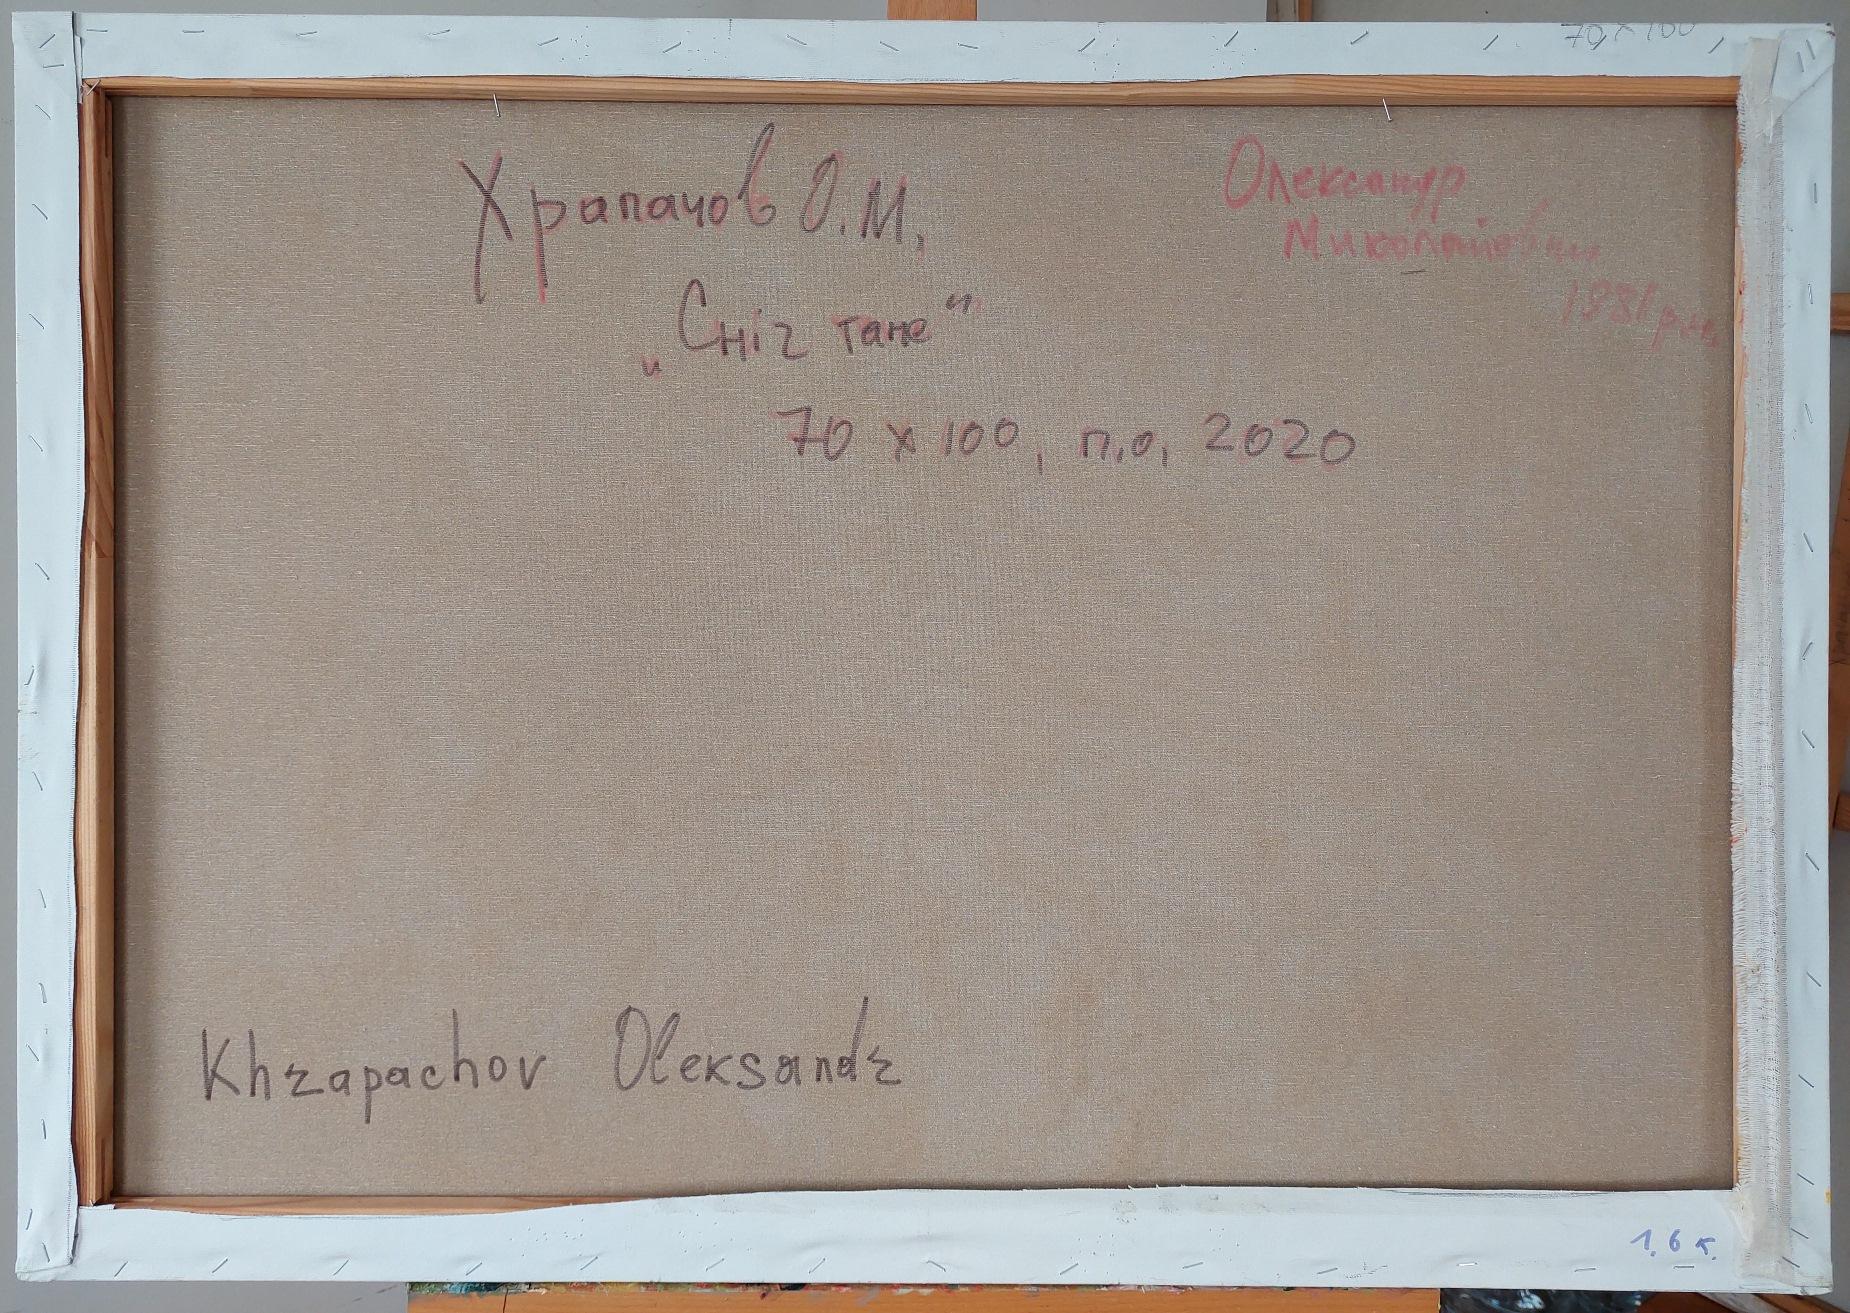 70 x 100
Храпачов О.М,
Олександр
Миколайович
1981 р.н.
„Сніг тане"
70 x 100, п.о, 2020
Khrapachov Oleksandr
1.6 к.